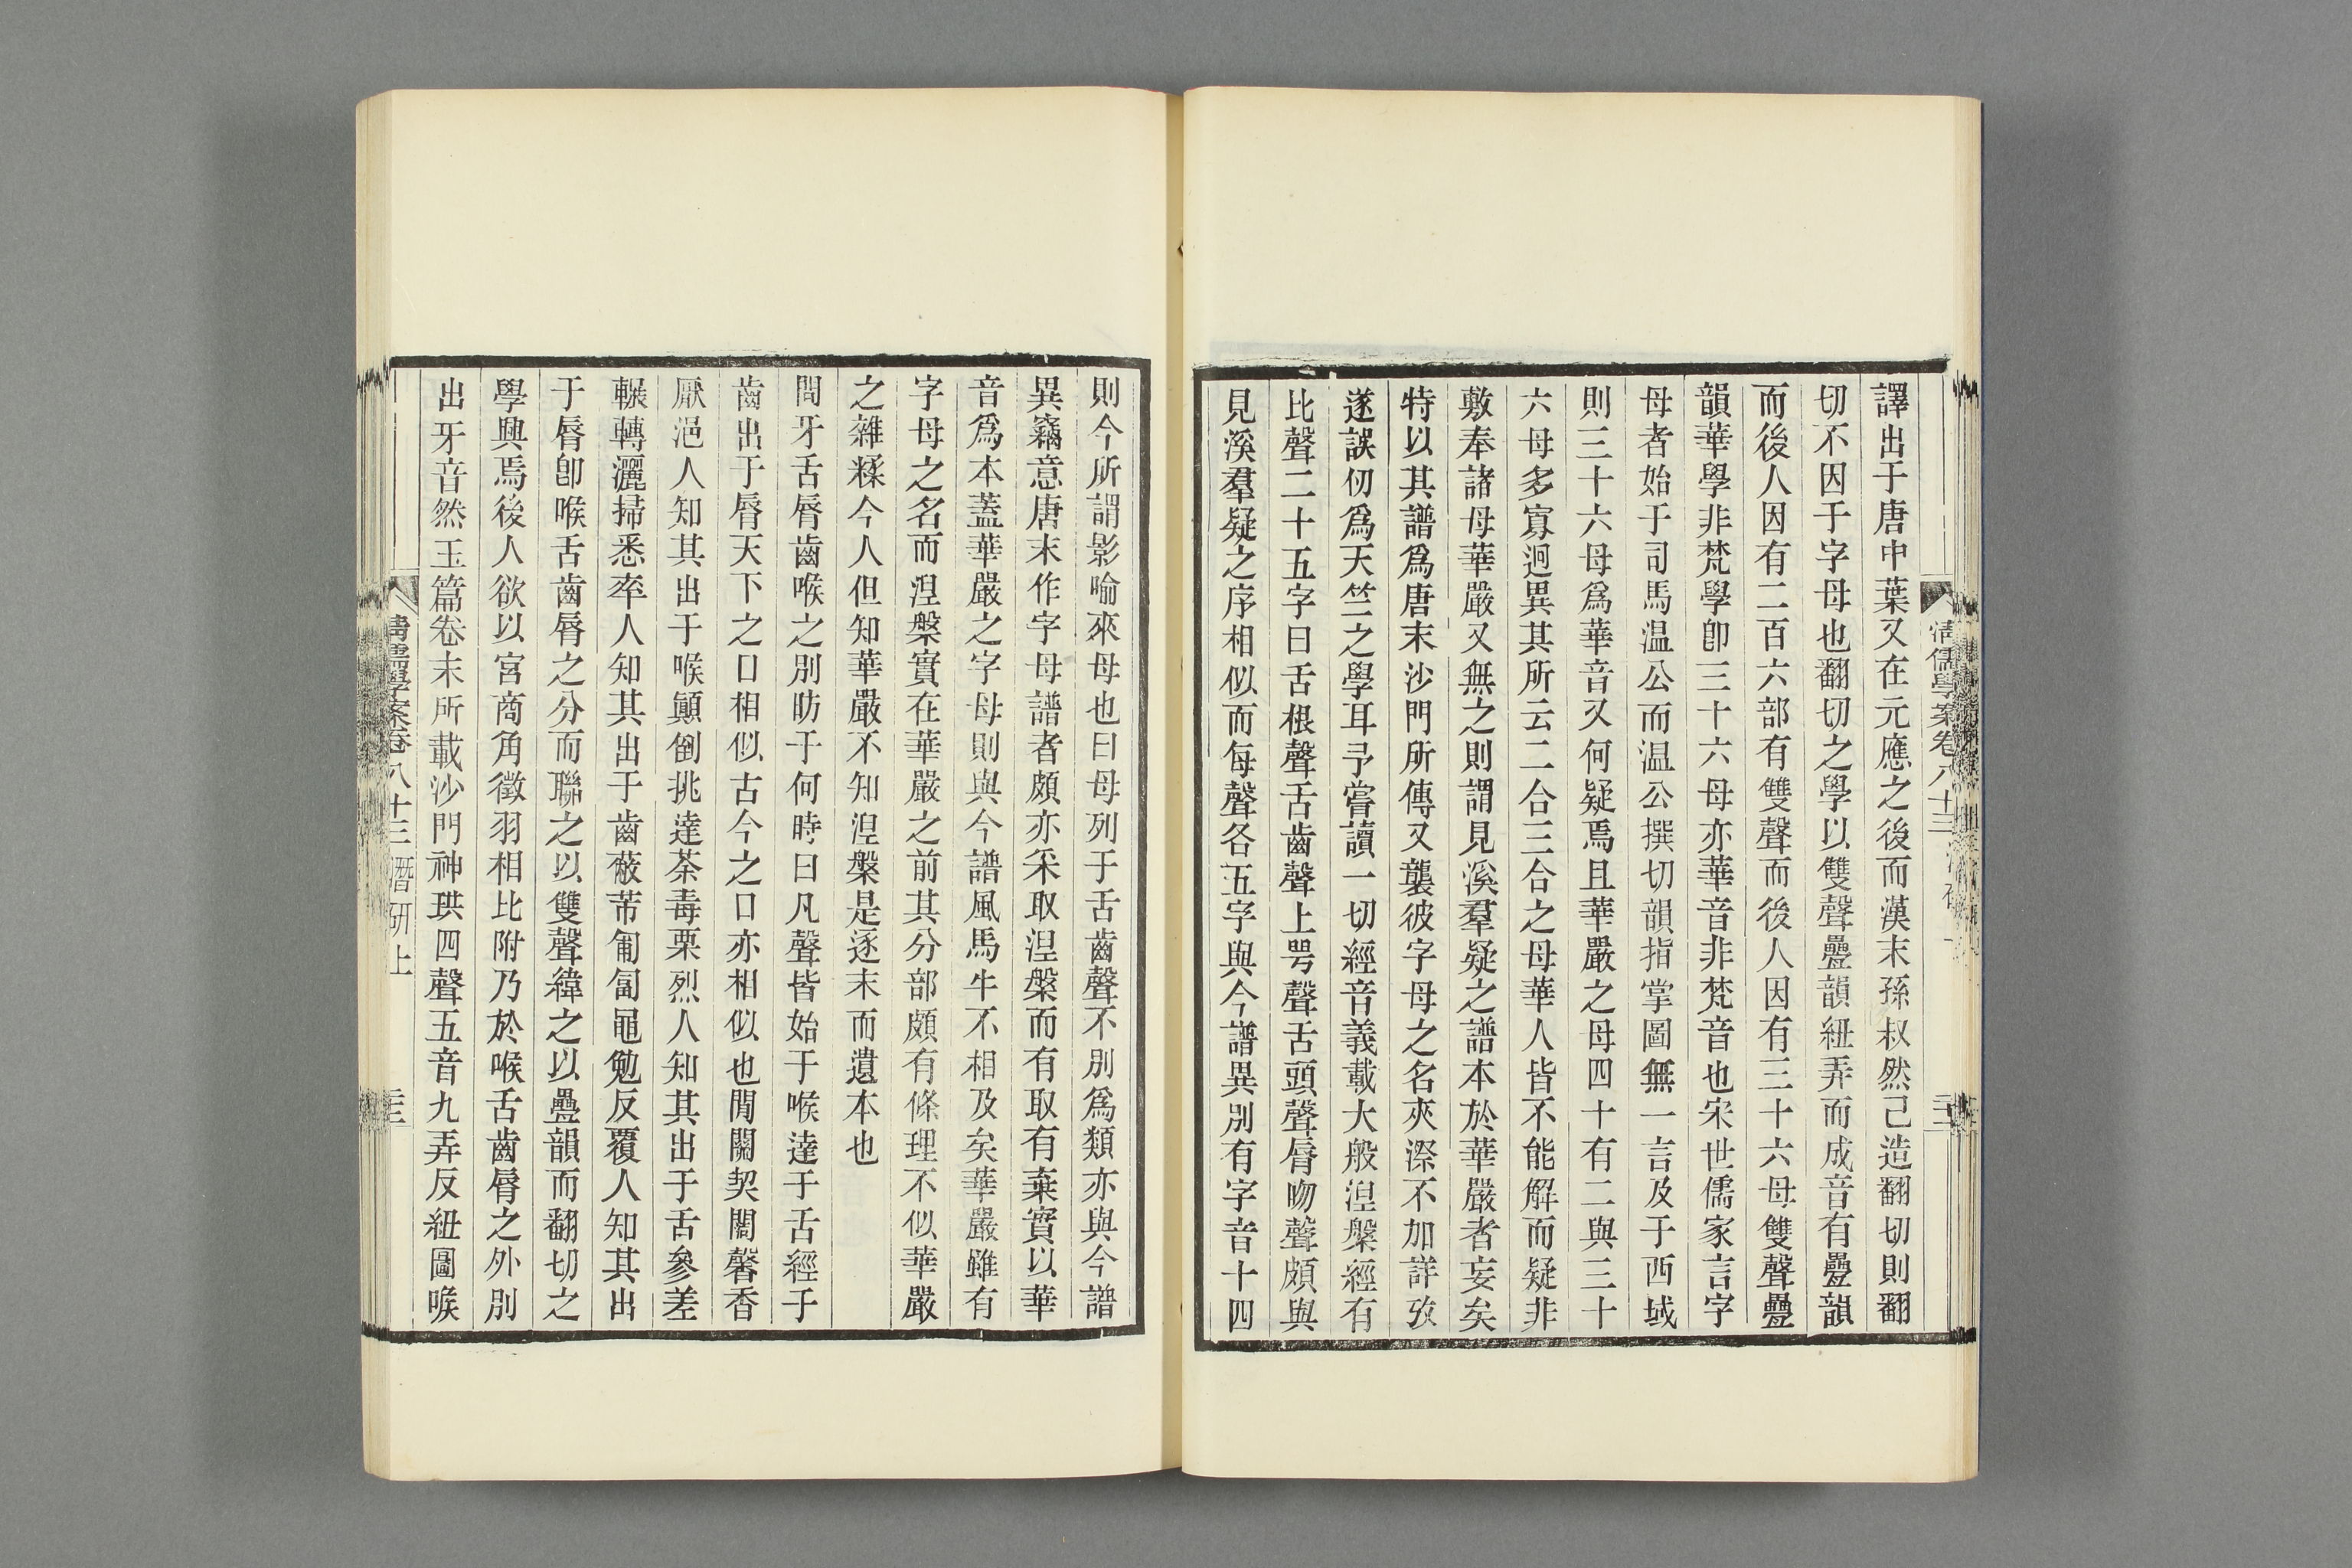 譯出于唐中葉又在元應之後而漢末孫叔然已造翻切則翻
切不因于字母也翻切之學以雙聲疊韻紐弄而成音有疊韻
而後人因有二百六部有雙聲而後人因有三十六母雙聲疊
韻華學非梵學卽三十六母亦華音非梵音也宋世儒家言字
母者始于司馬温公而温公撰切韻指掌圖無一言及于西域
則三十六母爲華音又何疑焉且華嚴之母四十有二與三十
六母多寡迥異其所云二合三合之母華人皆不能解而疑非
敷奉諸母華嚴又無之則謂見溪羣疑之譜本於華嚴者妄矣
特以其譜爲唐末沙門所傳又襲彼字母之名夾漈不加詳攷
遂誤仞爲天竺之學耳予嘗讀一切經音義載大般涅槃經有
比聲二十五字曰舌根聲舌齒聲上咢聲舌頭聲脣吻聲頗與
見溪羣疑之序相似而每聲各五字與今譜異別有字音十四
則今所謂影喻來母也曰母列于舌齒聲不別爲類亦與今譜
異竊意唐末作字母譜者頗亦采取涅槃而有取有棄實以華
音爲本蓋華嚴之字母則與今譜風馬牛不相及矣華嚴雖有
字母之名而涅槃實在華嚴之前其分部頗有條理不似華嚴
之雜糅今人但知華嚴不知涅槃是逐末而遺本也
問牙舌脣齒喉之別昉于何時曰凡聲皆始于喉達于舌經于
齒出于脣天下之口相似古今之口亦相似也閒關契闊馨香
厭浥人知其出于喉顚倒挑達荼毒栗烈人知其出于舌參差
輾轉灑掃悉率人知其出于齒蔽芾匍匐黽勉反覆人知其出
于脣卽喉舌齒脣之分而聯之以雙聲緯之以疊韻而翻切之
學興焉後人欲以宮商角徵羽相比附乃於喉舌齒脣之外別
出牙音然玉篇卷末所載沙門神珙四聲五音九弄反紐圖喉
清儒學案卷八十三 潛研上